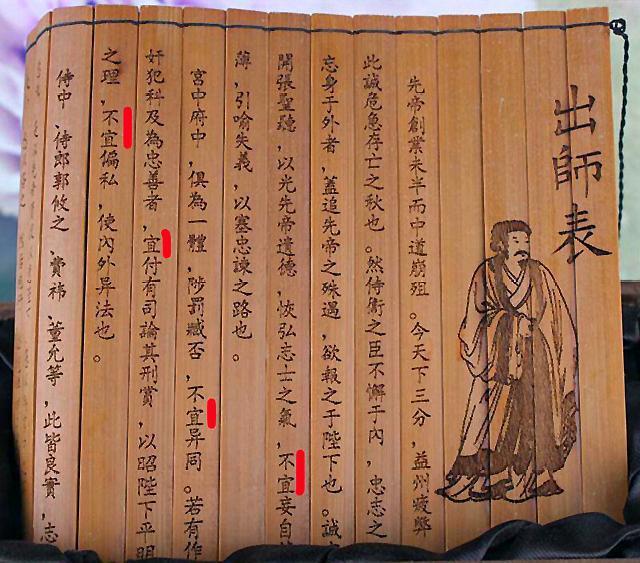 出師表
先帝創業未半而中道崩殂。今天下三分,益州疲弊
此誠危急存亡之秋也。然侍衛之臣不懈于內,忠志之
忘身于外者,蓋追先帝之殊遇,欲報之于陛下也。誠
開張聖聽,以光先帝遺德,恢弘志士之氣,不宜妄自
薄,引喻失義,以塞忠諫之路也。
宮中府中,俱為一體,陟罰臧否,不宜异同。若有作
奸犯科及為忠善者,宜付有司論其刑賞,以昭陛下平明
之理,不宜偏私,使內外异法也。
侍中、侍郎郭攸之、費禕、董允等,此皆良實,志